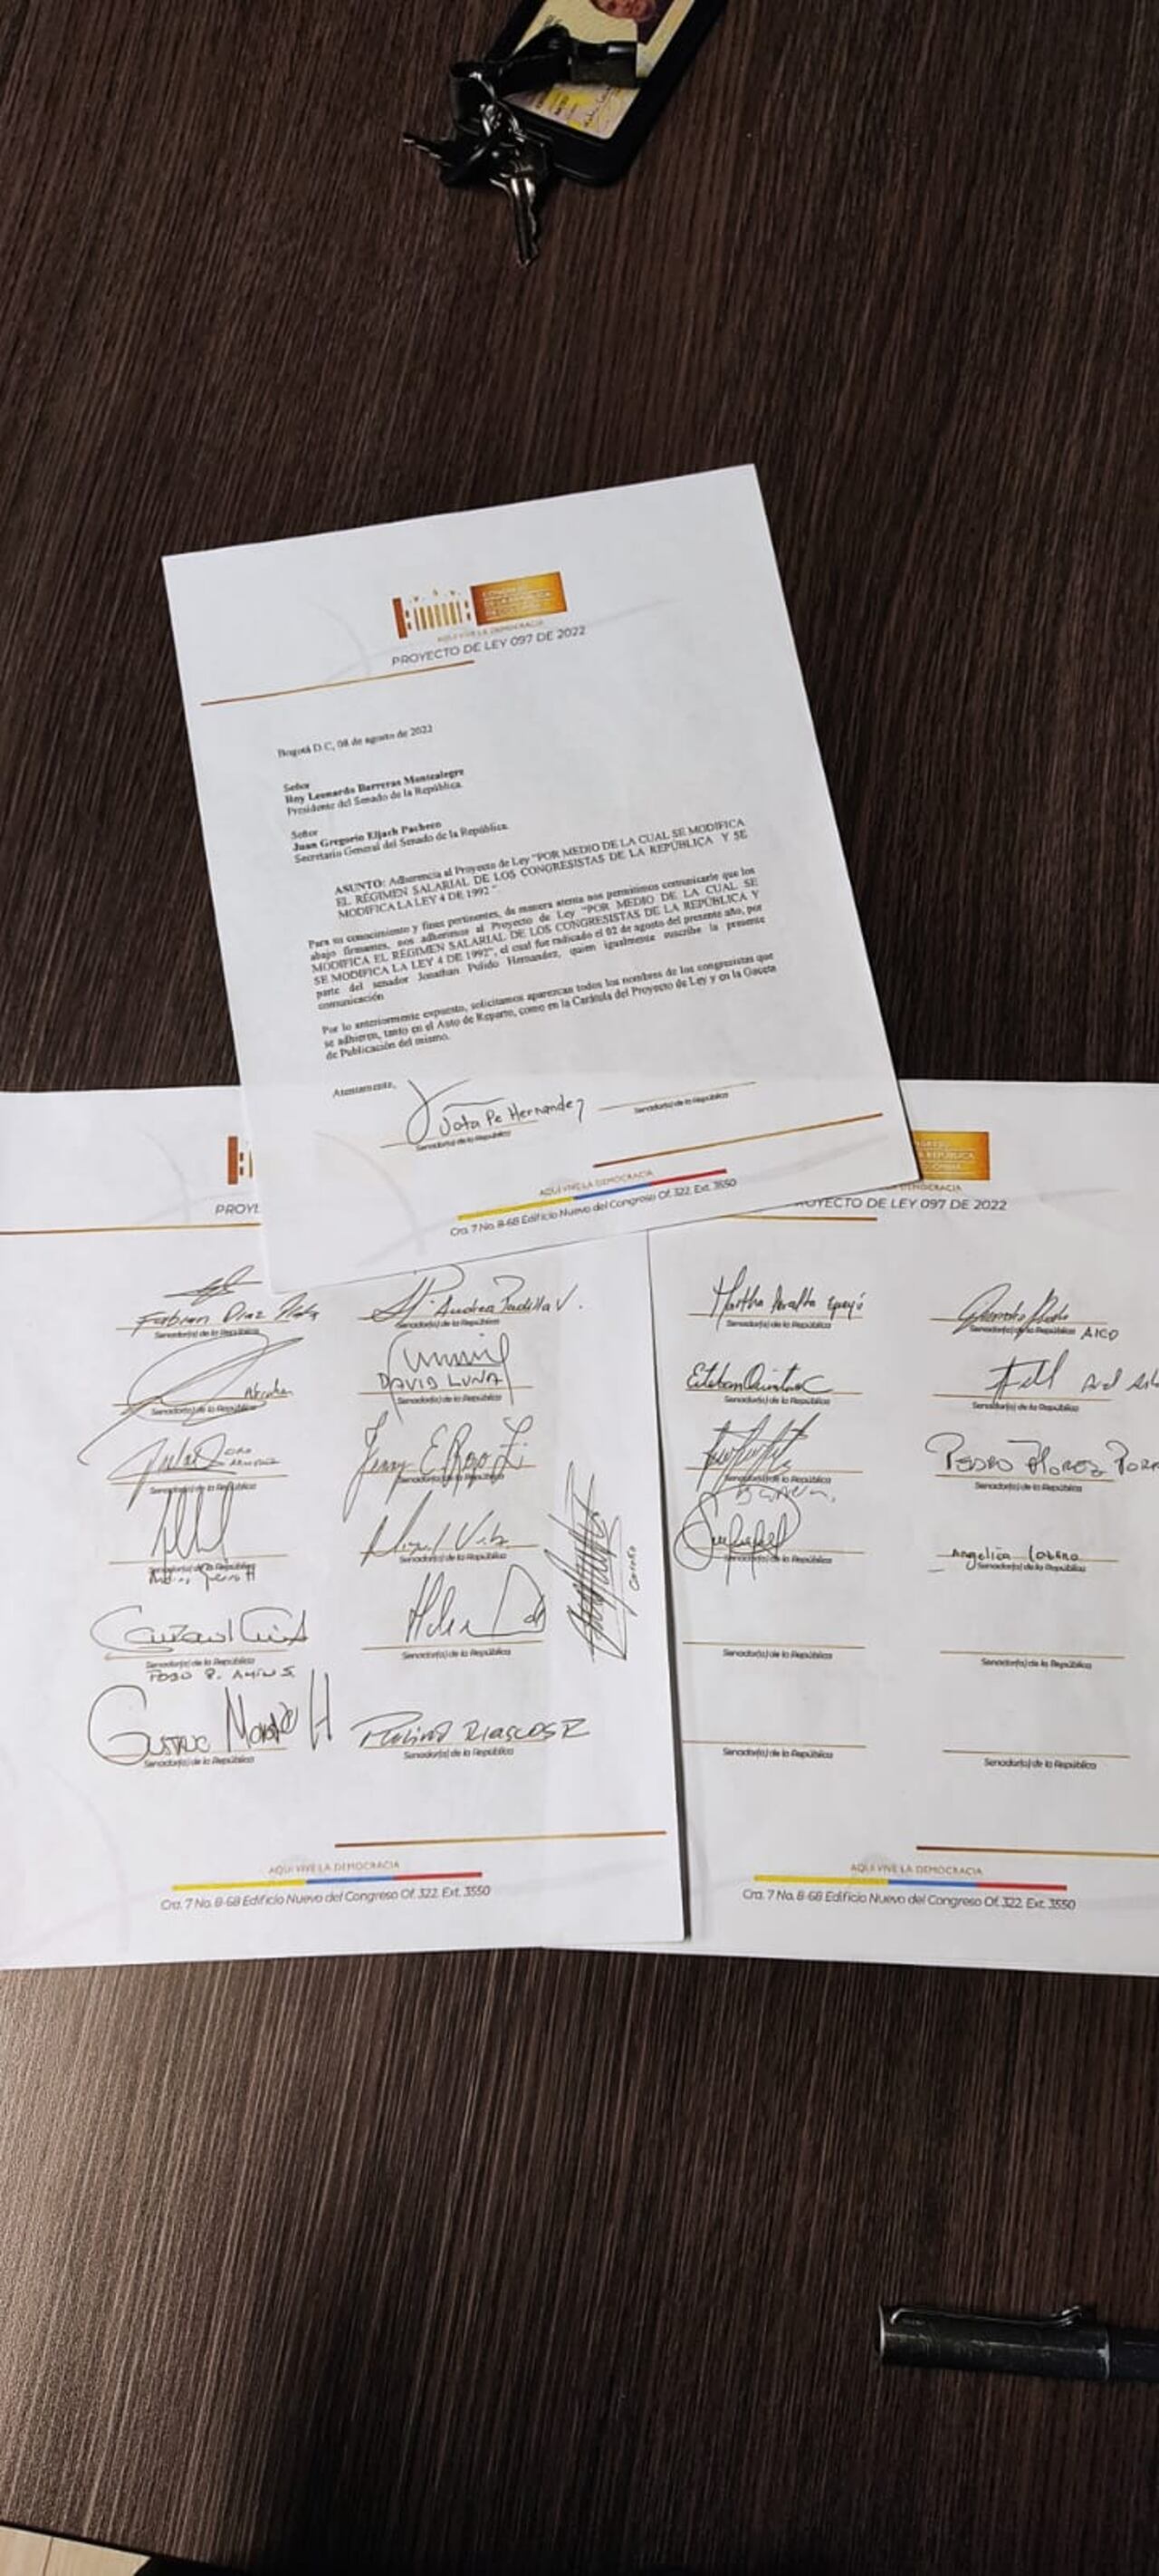 AQUÍ VIVE LA DEMOCRACIA
PROYECTO DE LEY 097 DE 2022
Bogotá D.C, 08 de agosto de 2022
Señor
Roy Leonardo Barreras Montealegre
Presidente del Senado de la República.
Señor
Juan Gregorio Eljach Pacheco
Secretario General del Senado de la República.
ASUNTO: Adherencia al Proyecto de Ley "POR MEDIO DE LA CUAL SE MODIFICA
EL RÉGIMEN SALARIAL DE LOS CONGRESISTAS DE LA REPÚBLICA Y SE
MODIFICA LA LEY 4 DE 1992"
Para su conocimiento y fines pertinentes, de manera atenta nos permitimos comunicarle que los
abajo firmantes, nos adherimos al Proyecto de Ley "POR MEDIO DE LA CUAL SE
MODIFICA EL RÉGIMEN SALARIAL DE LOS CONGRESISTAS DE LA REPÚBLICA Y
SE MODIFICA LA LEY 4 DE 1992", el cual fue radicado el 02 de agosto del presente año, por
parte del senador Jonathan Pulido Hernandez, quien igualmente suscribe la presente
comunicación
Por lo anteriormente expuesto, solicitamos aparezcan todos los nombres de los congresistas que
se adhieren, tanto en el Auto de Reparto, como en la Carátula del Proyecto de Ley y en la Gaceta
de Publicación del mismo.
Atentamente,
Jota Pe Hernandez
Senador(a) de la República
Senador(a) de la República
AQUÍ VIVE LA DEMOCRACIA
Cra. 7 No. 8-68 Edificio Nuevo del Congreso Of. 322. Ext. 3550
PROYE
Fabian Diaz Plata
Senador(a) de la República
Andrea Padilla V.
Senador(a) de la República
Senador(a) de la República
DAVID LUNA
Senador(a) de la República
Senador(a) de la República
Senador(a) de la República
Senador(a) de la República
Senador(a) de la República
Senador(a) de la República
Senador(a) de la República
Gustavo Moreno H
Senador(a) de la República
Paulino Riascos R
Senador(a) de la República
AQUÍ VIVE LA DEMOCRACIA
Cra. 7 No. 8-68 Edificio Nuevo del Congreso Of. 322. Ext. 3550
OYECTO DE LEY 097 DE 2022
Martha Peralta Epieyú
Senador(a) de la República
Senador(a) de la República AICO
Esteban Quintero C
Senador(a) de la República
Senador(a) de la República
Senador(a) de la República
Pedro Florez Porr
Senador(a) de la República
Senador(a) de la República
Angelica Lozano
Senador(a) de la República
Senador(a) de la República
Senador(a) de la República
Senador(a) de la República
Senador(a) de la República
AQUÍ VIVE LA DEMOCRACIA
Cra. 7 No. 8-68 Edificio Nuevo del Congreso Of. 322. Ext. 3550